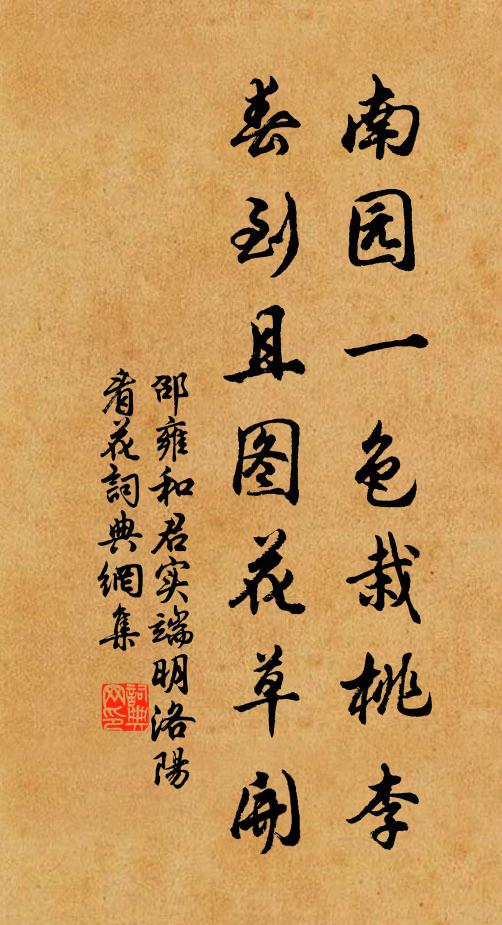 南园一色栽桃李
春到且图花草开
邵雍和君实端明洛陽
看花詞典網集
詞典网印